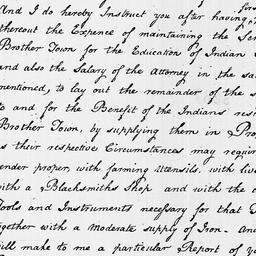 And I do hereby Instruct you after having
thereout the Expence of maintaining the
Brother Town for the Education of Indian
and also the Salary of the Attorney in the
mentioned, to lay out the remainder of the
to and for the Benefit of the Indians
Brother Town, by supplying them in
as their respective Circumstances may
proper, with farming Utensils, with
with a Blacksmiths Shop and with the
Tools and Instruments necessary for that
together with a moderate supply of Iron—
will make to me a particular Report of